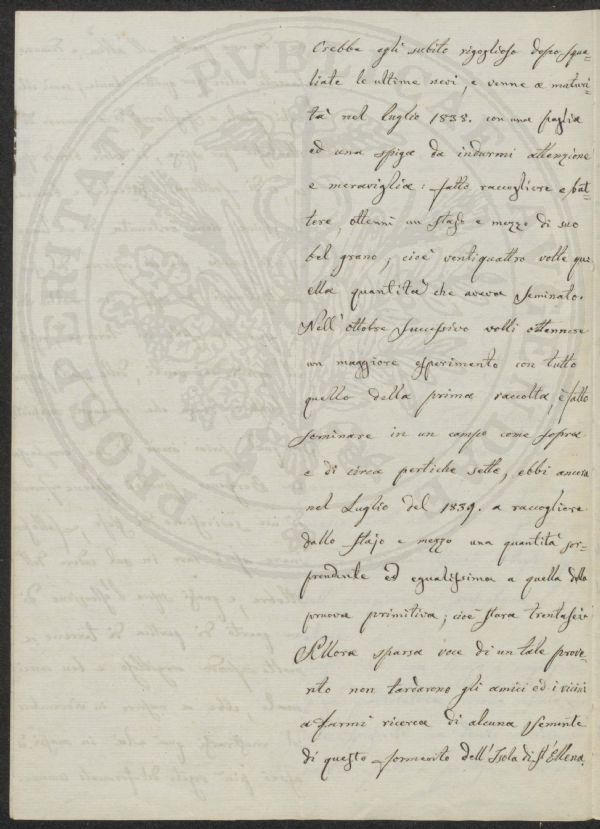 Crebbe egli subito rigoglioso dopo squa-
liate le ultime nevi, e venne a maturi-
tà nel luglio 1838. con una paglia
ed una spiga da indurmi attenzione
e meraviglia: fatto raccogliere e bat-
tere, ottenni un stajo e mezzo di suo
bel grano; cioè ventiquattro volte qu
ella quantità che aveva seminato.
Nell'ottobre successivo volli ottennere
un maggiore esperimento con tutto
quello della prima raccolta, e fatto
seminare in un campo come sopra
e di circa pertiche sette, ebbi ancora
nel Luglio del 1839. a raccogliere
dallo stajo e mezzo una quantità sor-
prendente ed egualissima a quella della
pruova primitiva; cioè stara trentasei.
Allora sparsa voce di un tale prove-
nto non tardarono gli amici ed i vicini
a farmi ricerca di alcuna semente
di questo formento dell'Isola di St Ellena.
PROSPERITATI PUBL